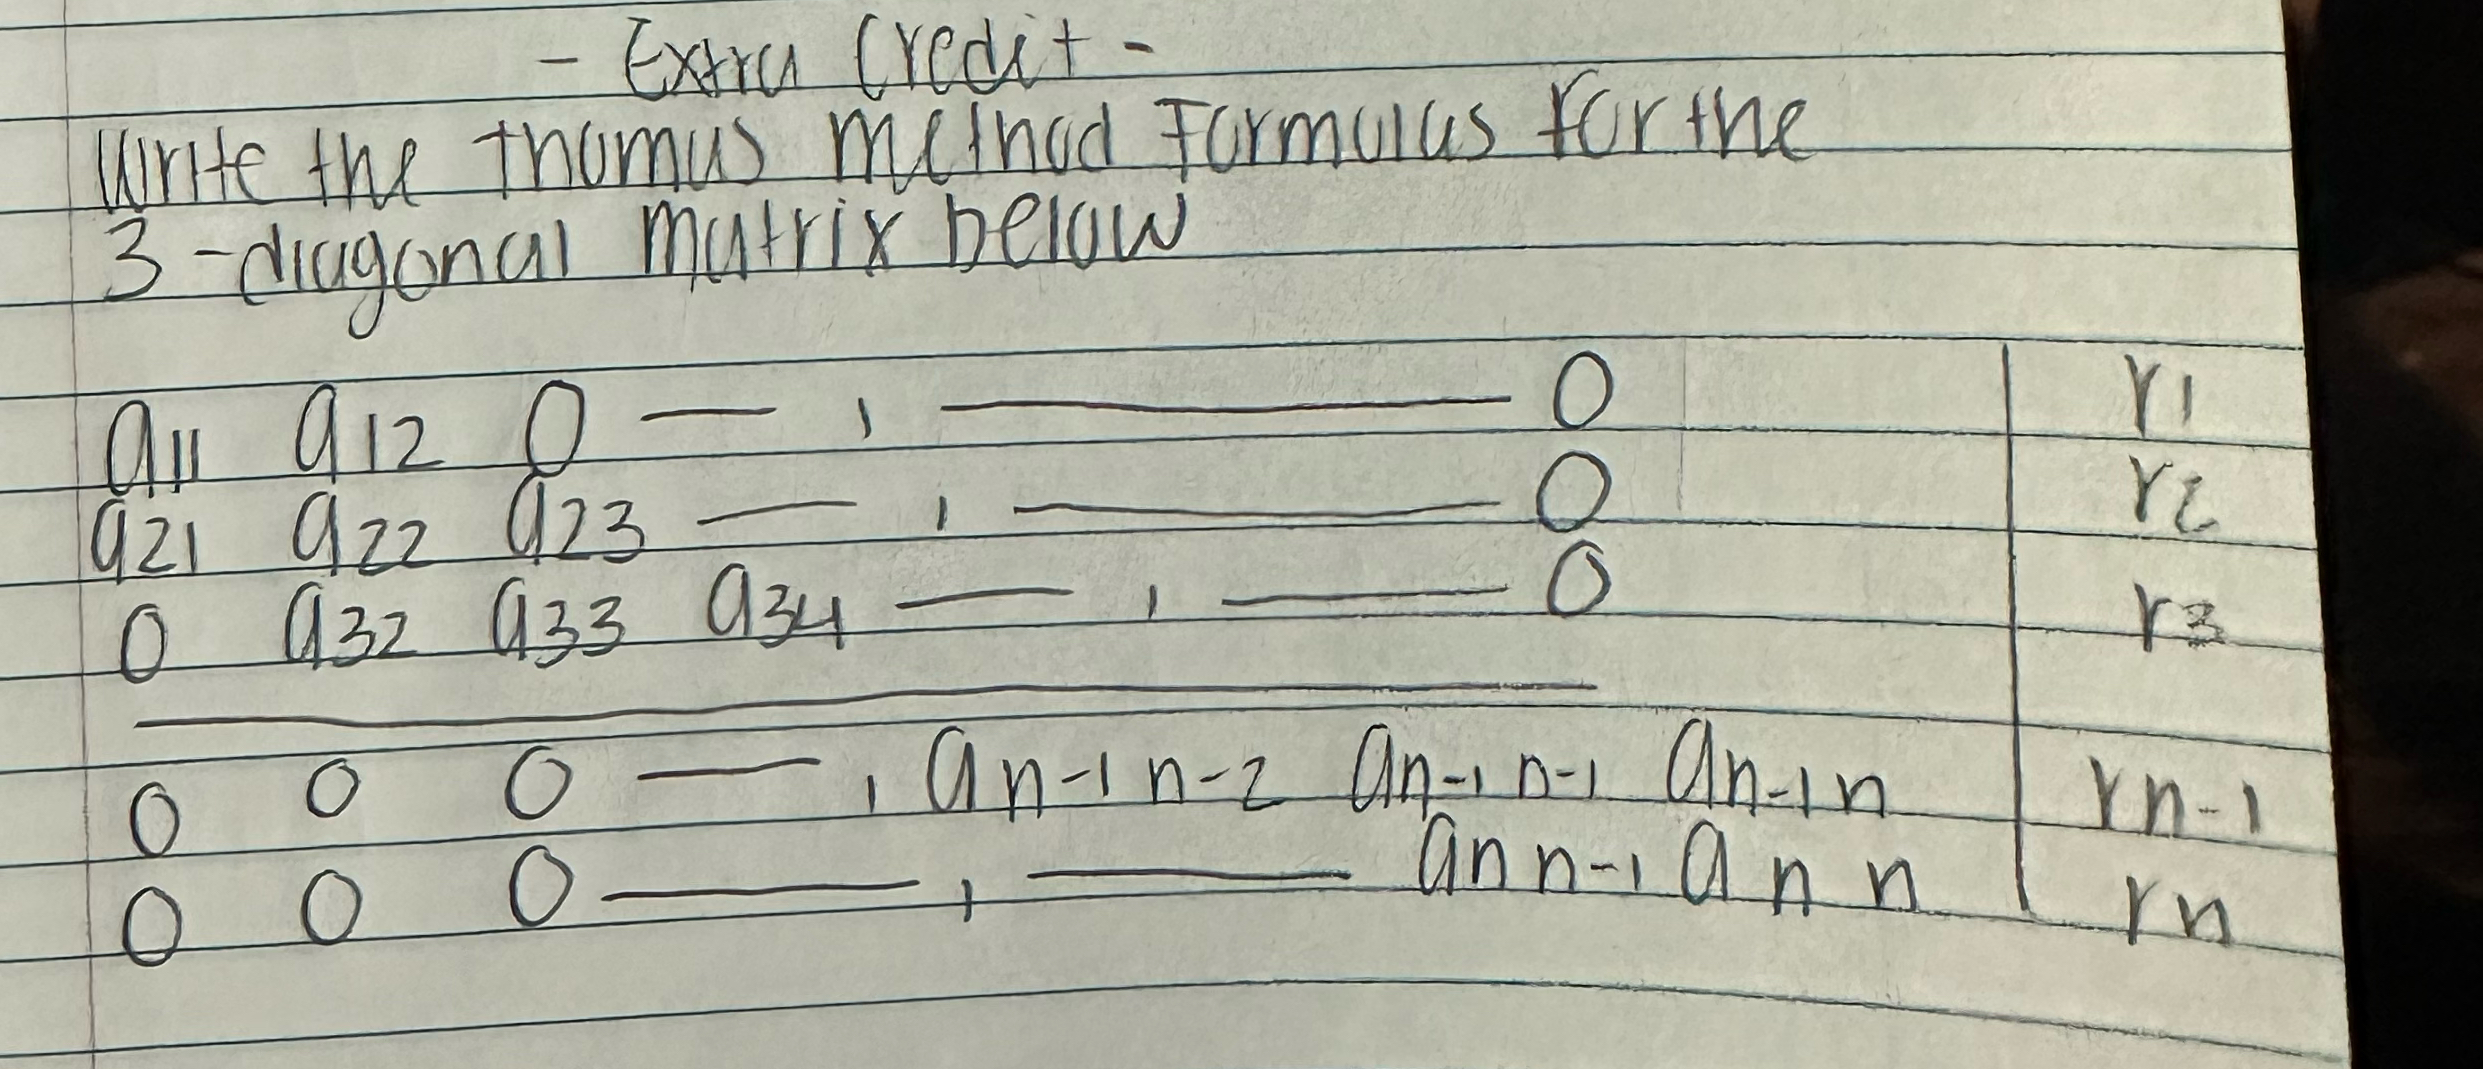 - Extra Credit -
Write the thomas method Formulas for the
3-diagonal matrix below
a11 a12 0 — , — 0 | r1
a21 a22 a23 — , — 0 | r2
0 a32 a33 a34 — , — 0 | r3
0 0 0 — , an-1 n-2 an-1 n-1 an-1 n | rn-1
0 0 0 — , — an n-1 an n | rn